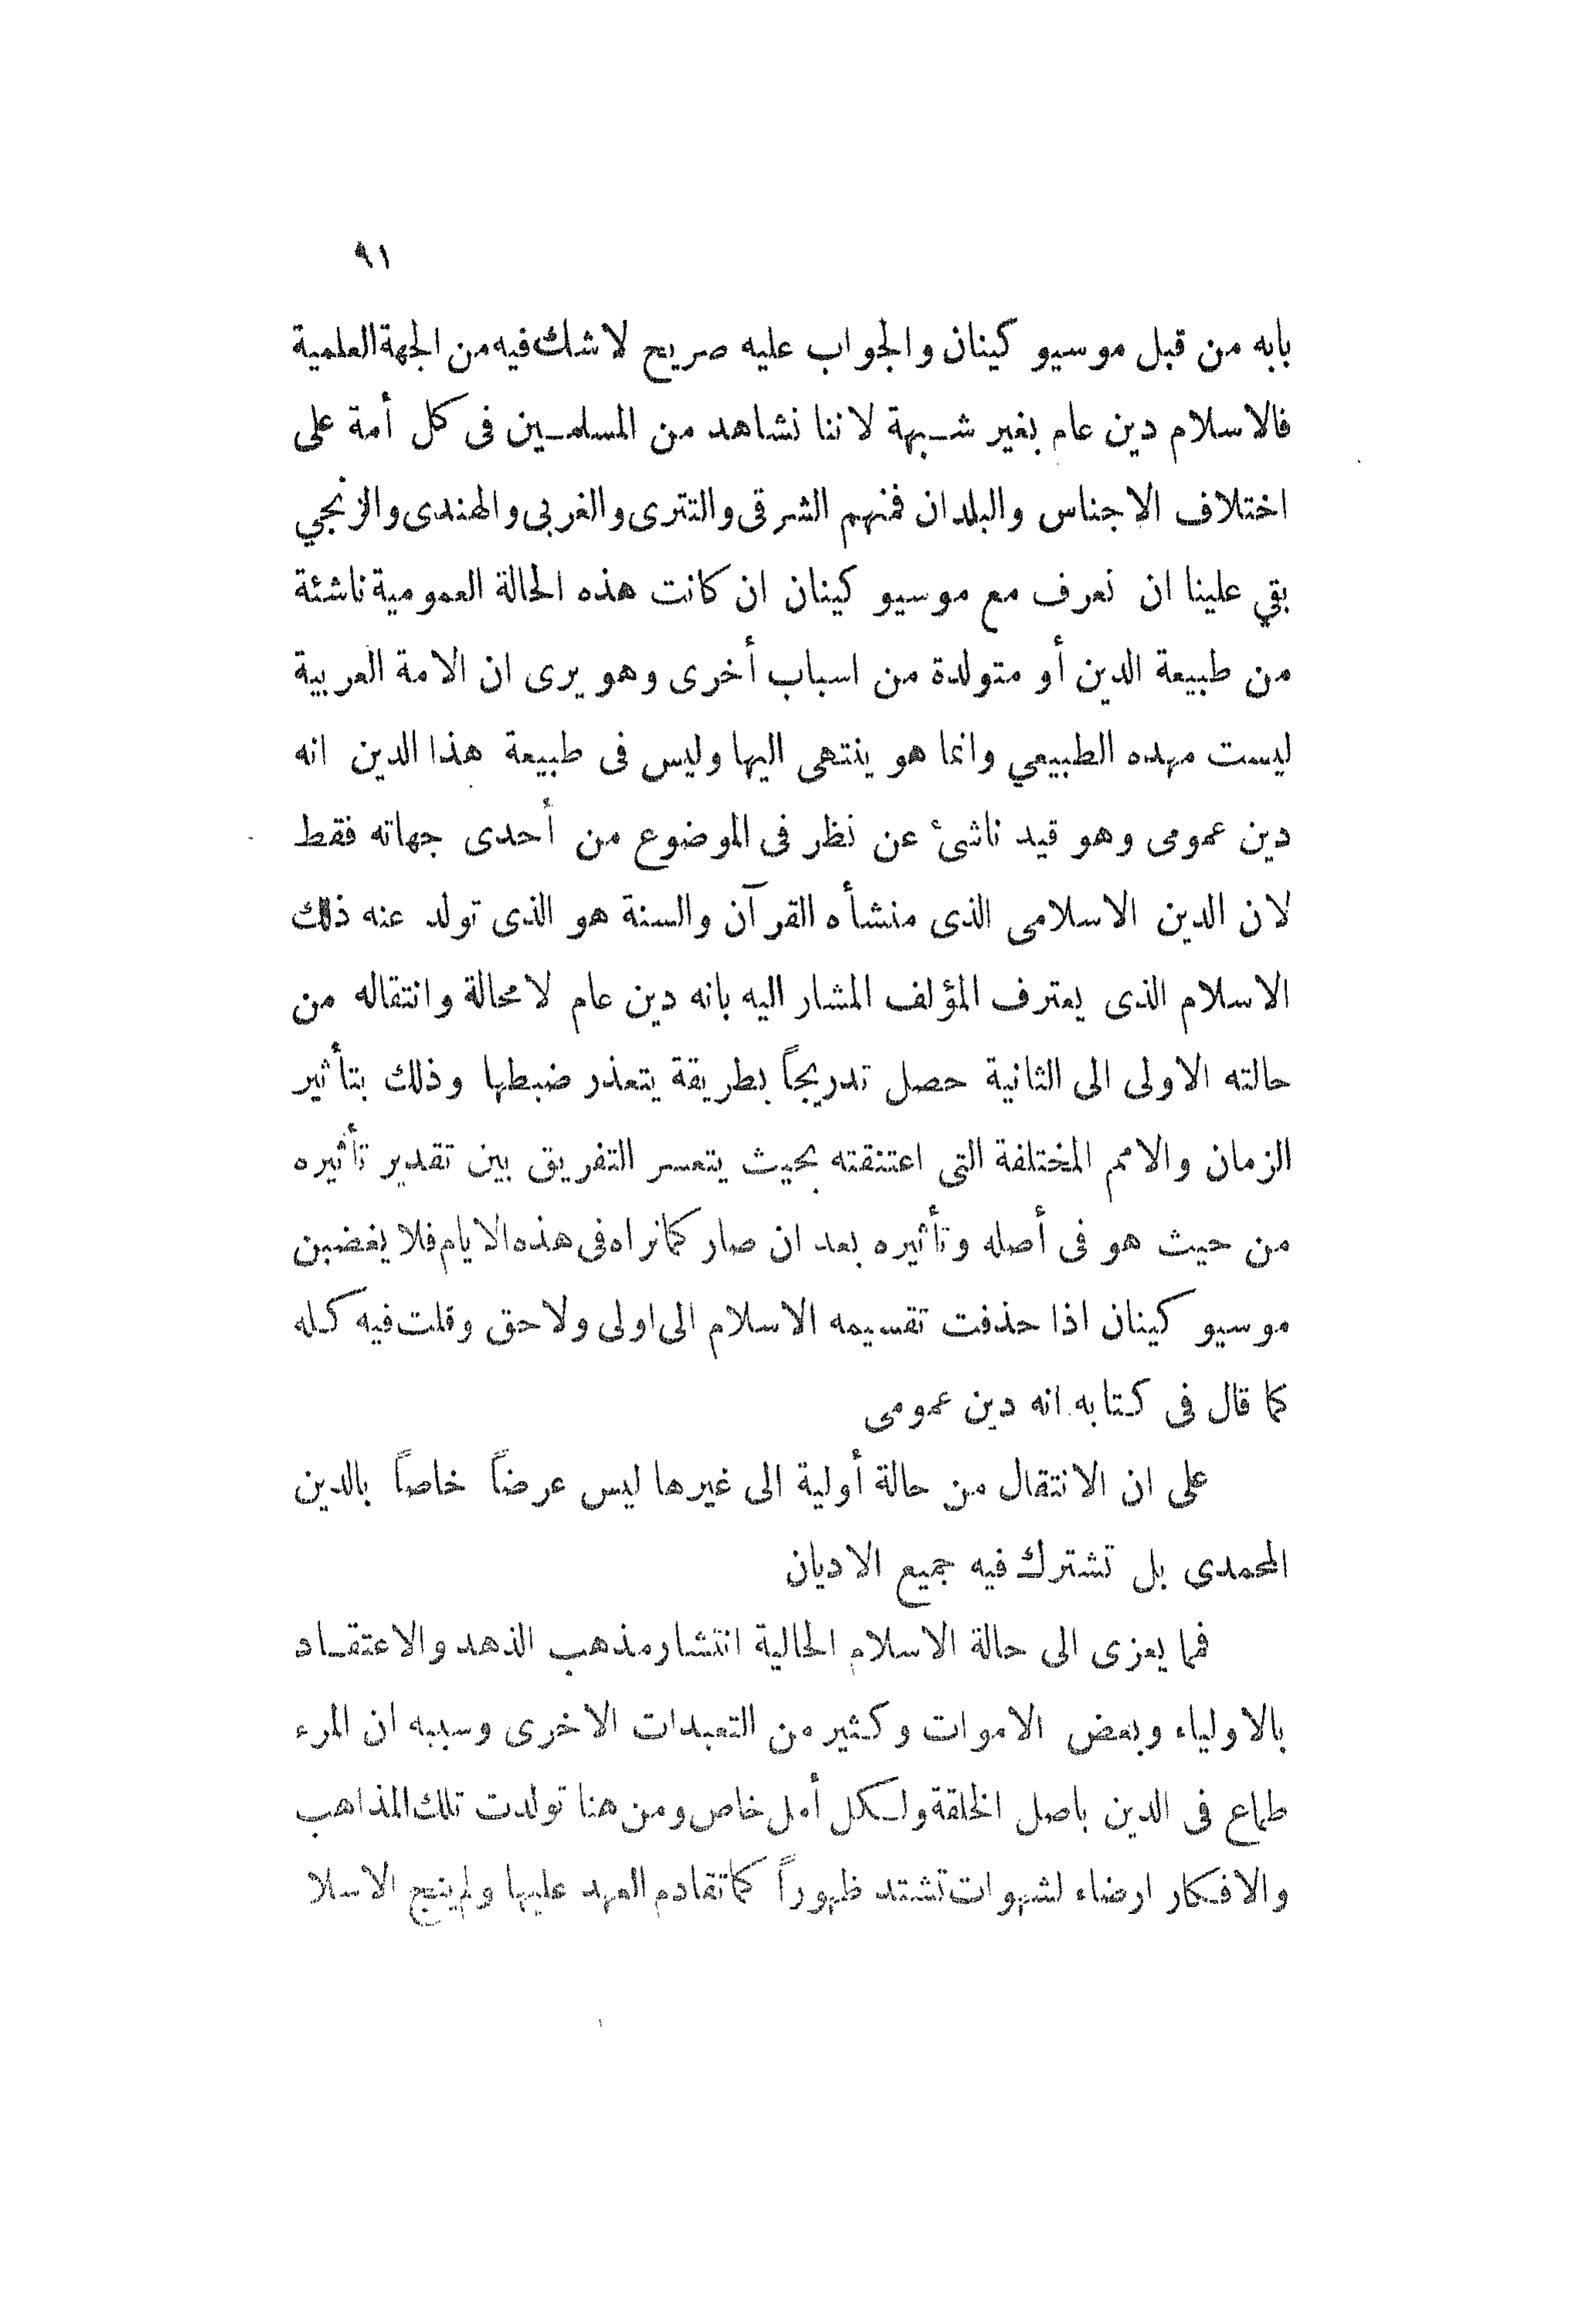 ٩١
بابه من قبل موسيو كينان والجواب عليه صريح لاشك فيه من الجهة العلمية
فالاسلام دين عام بغير شبهة لاننا نشاهد من المسلمين فى كل أمة على
اختلاف الاجناس والبلدان فمنهم الشرقى والتترى والغربى والهندى والزنجي
بقي علينا ان نعرف مع موسيو كينان ان كانت هذه الحالة العمومية ناشئة
من طبيعة الدين أو متولدة من اسباب أخرى وهو يرى ان الامة العربية
ليست مهده الطبيعي وانما هو ينتهى اليها وليس فى طبيعة هذا الدين انه
دين عمومى وهو قيد ناشئ عن نظر فى الموضوع من أحدى جهاته فقط
لان الدين الاسلامى الذى منشأه القرآن والسنة هو الذى تولد عنه ذلك
الاسلام الذى يعترف المؤلف المشار اليه بانه دين عام لا محالة وانتقاله من
حالته الاولى الى الثانية حصل تدريجاً بطريقة يتعذر ضبطها وذلك بتأثير
الزمان والامم المختلفة التى اعتنقته بحيث يتعسر التفريق بين تقدير تأثيره
من حيث هو فى أصله وتأثيره بعد ان صار كما نراه فى هذه الايام فلا يغضبن
موسيو كينان اذا حذفت تقسيمه الاسلام الى اولى ولاحق وقلت فيه كله
كما قال فى كتابه انه دين عمومى
على ان الانتقال من حالة أولية الى غيرها ليس عرضاً خاصاً بالدين
المحمدى بل تشترك فيه جميع الاديان
فما يعزى الى حالة الاسلام الحالية انتشار مذهب الذهد والاعتقاد
بالاولياء وبعض الاموات وكثير من التعبدات الاخرى وسببه ان المرء
طماع فى الدين باصل الخلقة ولكل أمل خاص ومن هنا تولدت تلك المذاهب
والافكار ارضاء لشهوات تشتد ظهوراً كما تقادم العهد عليها ولم ينج الاسلا